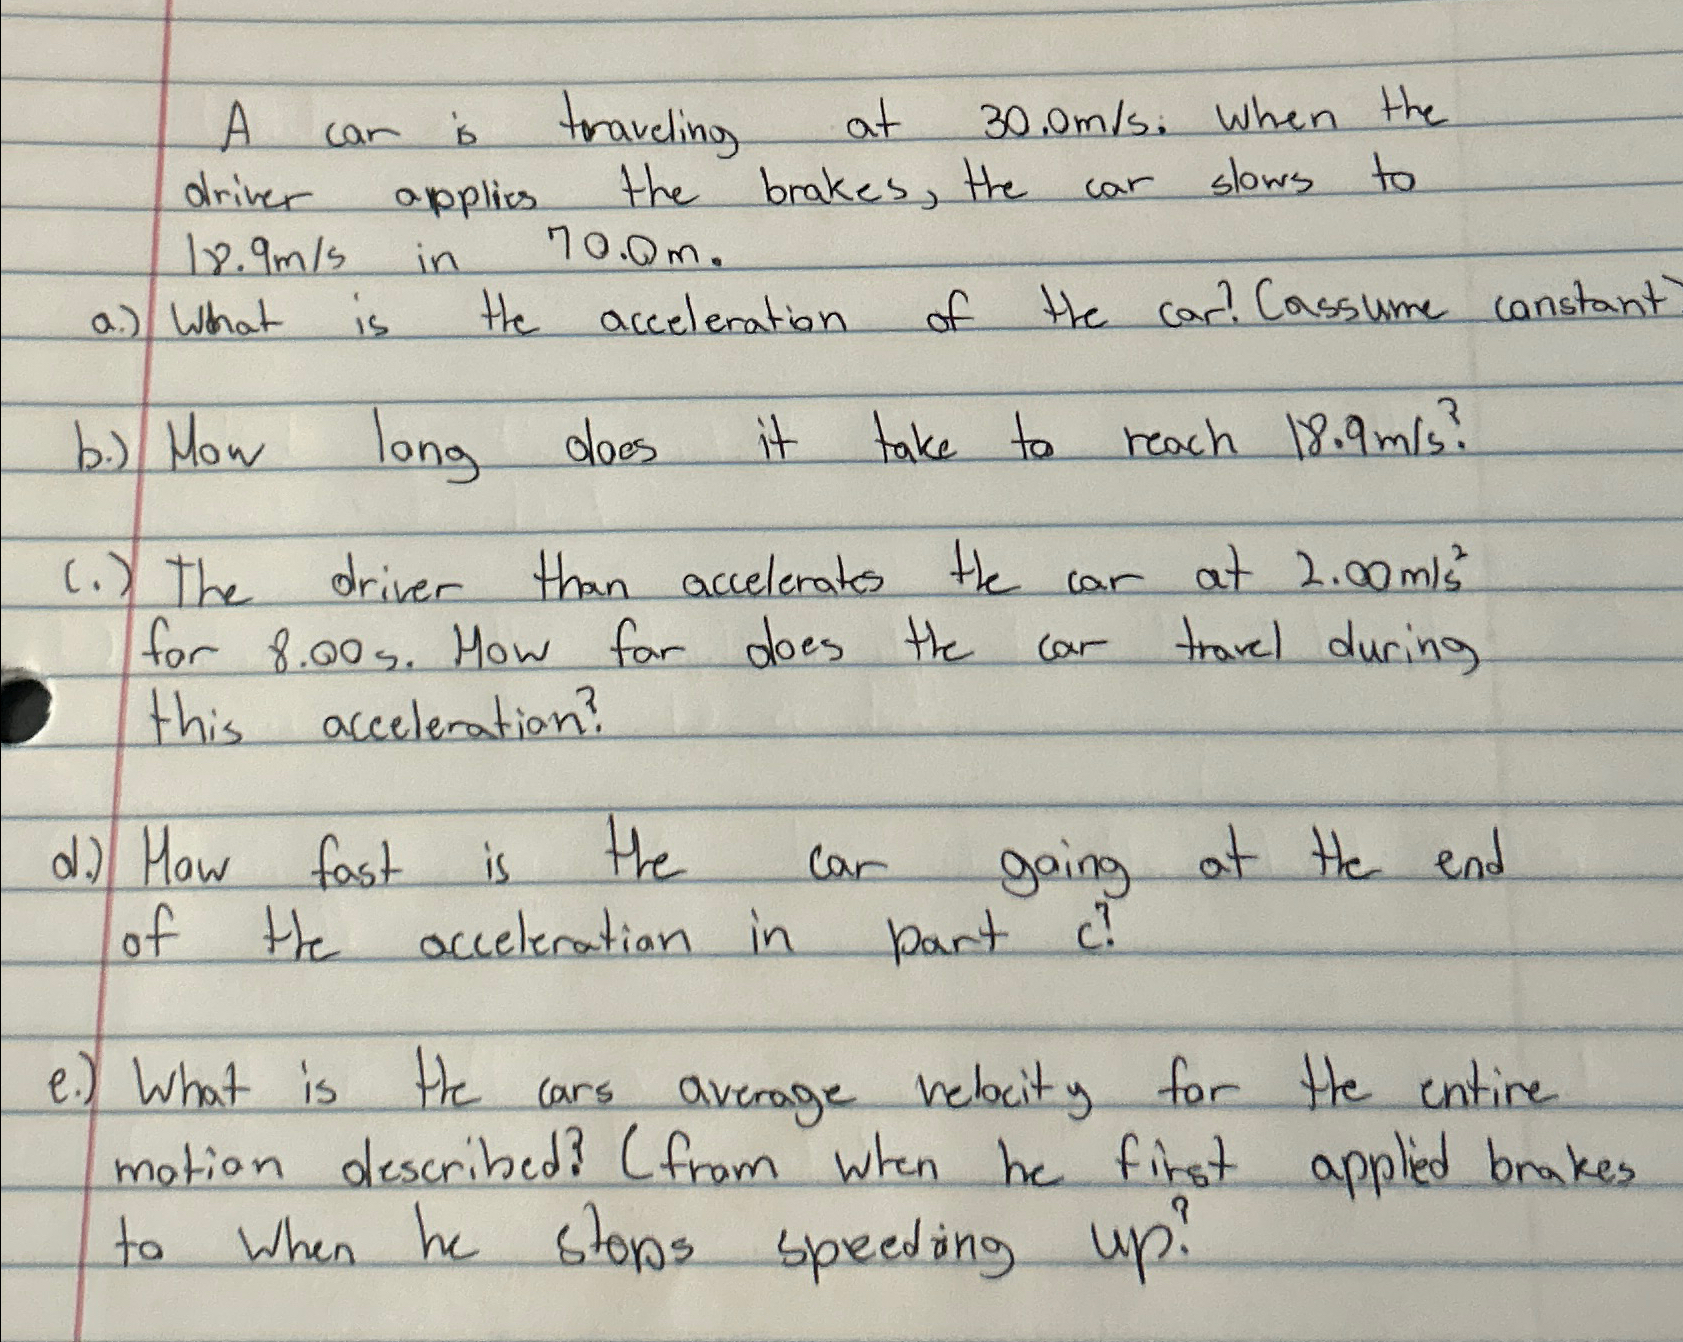 A car is traveling at 30.0m/s. When the
driver applies the brakes, the car slows to
18.9m/s in 70.0m.
a.) What is the acceleration of the car? (assume constant)
b.) How long does it take to reach 18.9m/s?
c.) The driver than accelerates the car at 2.00m/s²
for 8.00s. How far does the car travel during
this acceleration?
d.) How fast is the car going at the end
of the acceleration in part c?
e.) What is the cars average velocity for the entire
motion described? (from when he first applied brakes
to when he stops speeding up?